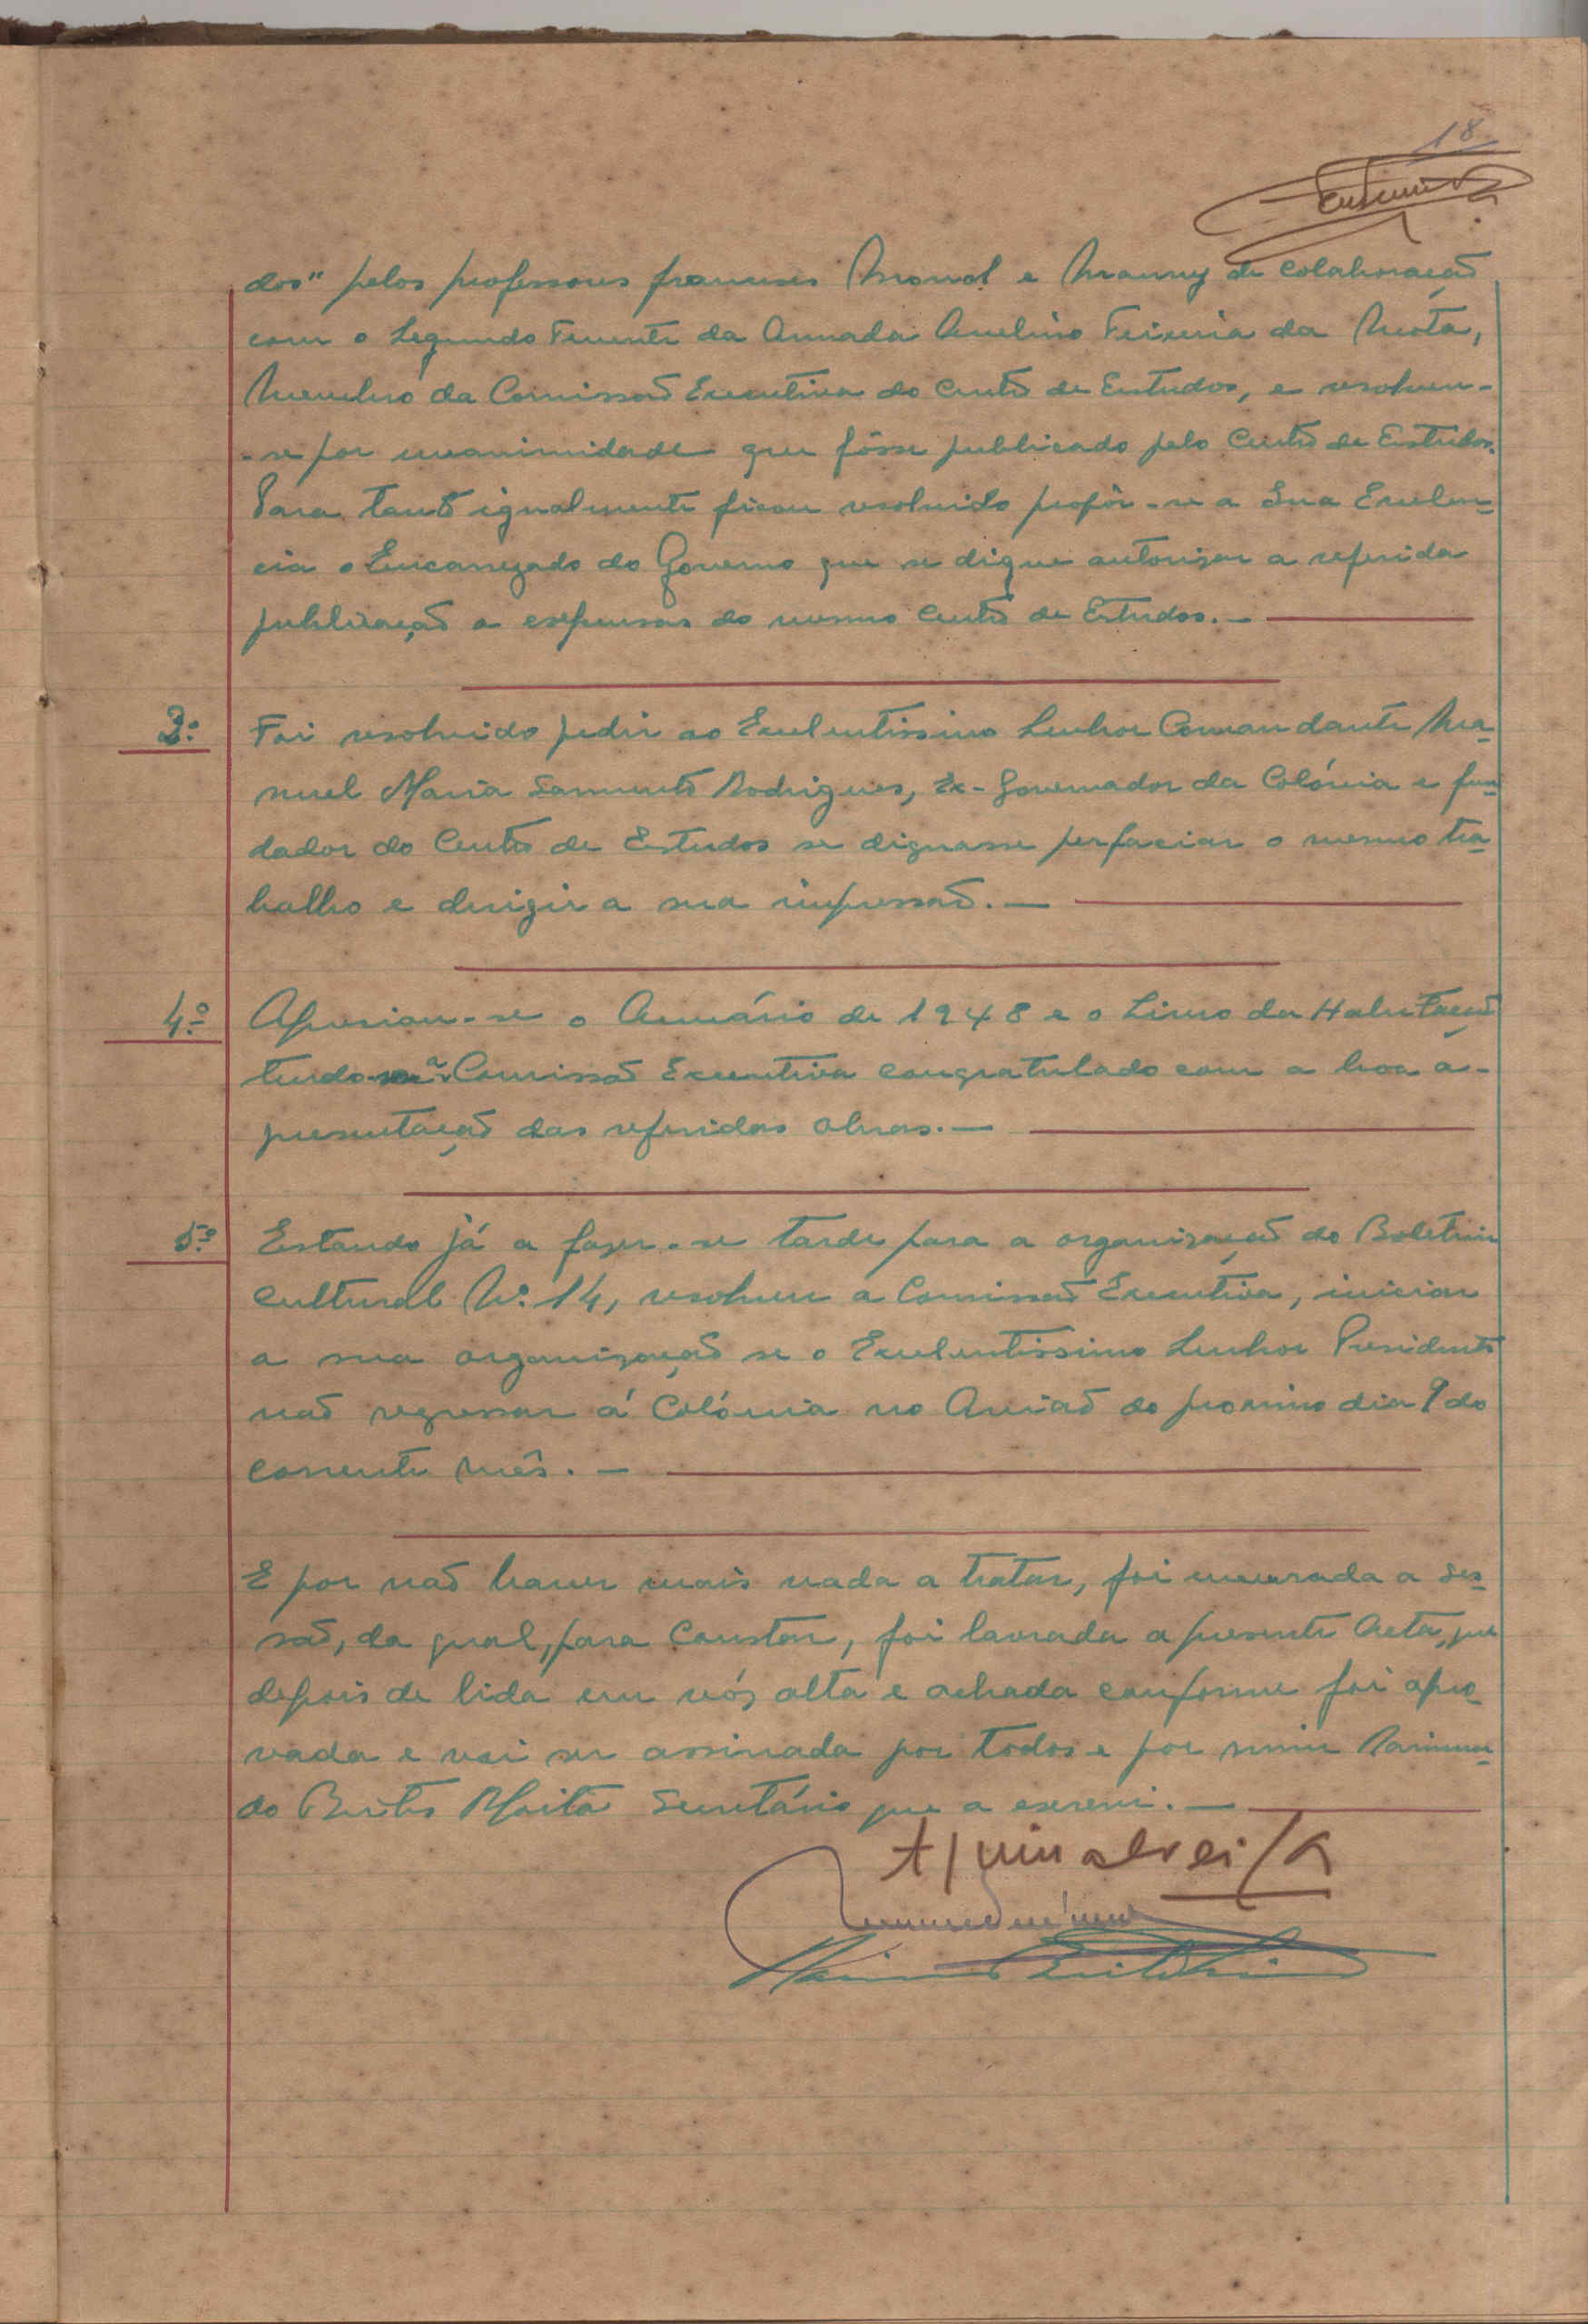 18
dos" pelos professores franceses Monod e Mauny de colaboração
com o Segundo Tenente da Armada Avelino Teixeira da Mota,
Membro da Comissão Executiva do Centro de Estudos, e resolveu-
-se por unanimidade que fôsse publicado pelo Centro de Estudos.
Para tanto igualmente ficou resolvido propôr-se a Sua Excelen-
cia o Encarregado do Governo que se digne autorizar a referida
publicação a expensas do mesmo Centro de Estudos.—
3º
Foi resolvido pedir ao Excelentissimo Senhor Comandante Ma-
nuel Maria Sarmento Rodrigues, Ex-Governador da Colónia e fun-
dador do Centro de Estudos se dignasse perfaciar o mesmo tra-
balho e dirigir a sua impressão.—
4º
Apreciou-se o Anuário de 1948 e o Livro da Habitação
tendo a Comissão Executiva congratulado com a boa a-
presentação das referidas obras.—
5º
Estando já a fazer-se tarde para a organização do Boletim
Cultural Nº 14, resolveu a Comissão Executiva, iniciar
a sua organização se o Excelentissimo Senhor Presidente
não regressar á Colónia no Avião do proximo dia 9 do
corrente mês.—
E por não haver mais nada a tratar, foi encerrada a ses-
são, da qual, para constar, foi lavrada a presente Acta, que
depois de lida em vós alta e achada conforme foi apro-
vada e vai ser assinada por todos e por mim Raimun-
do Brito Moita Secretário que a escrevi.—